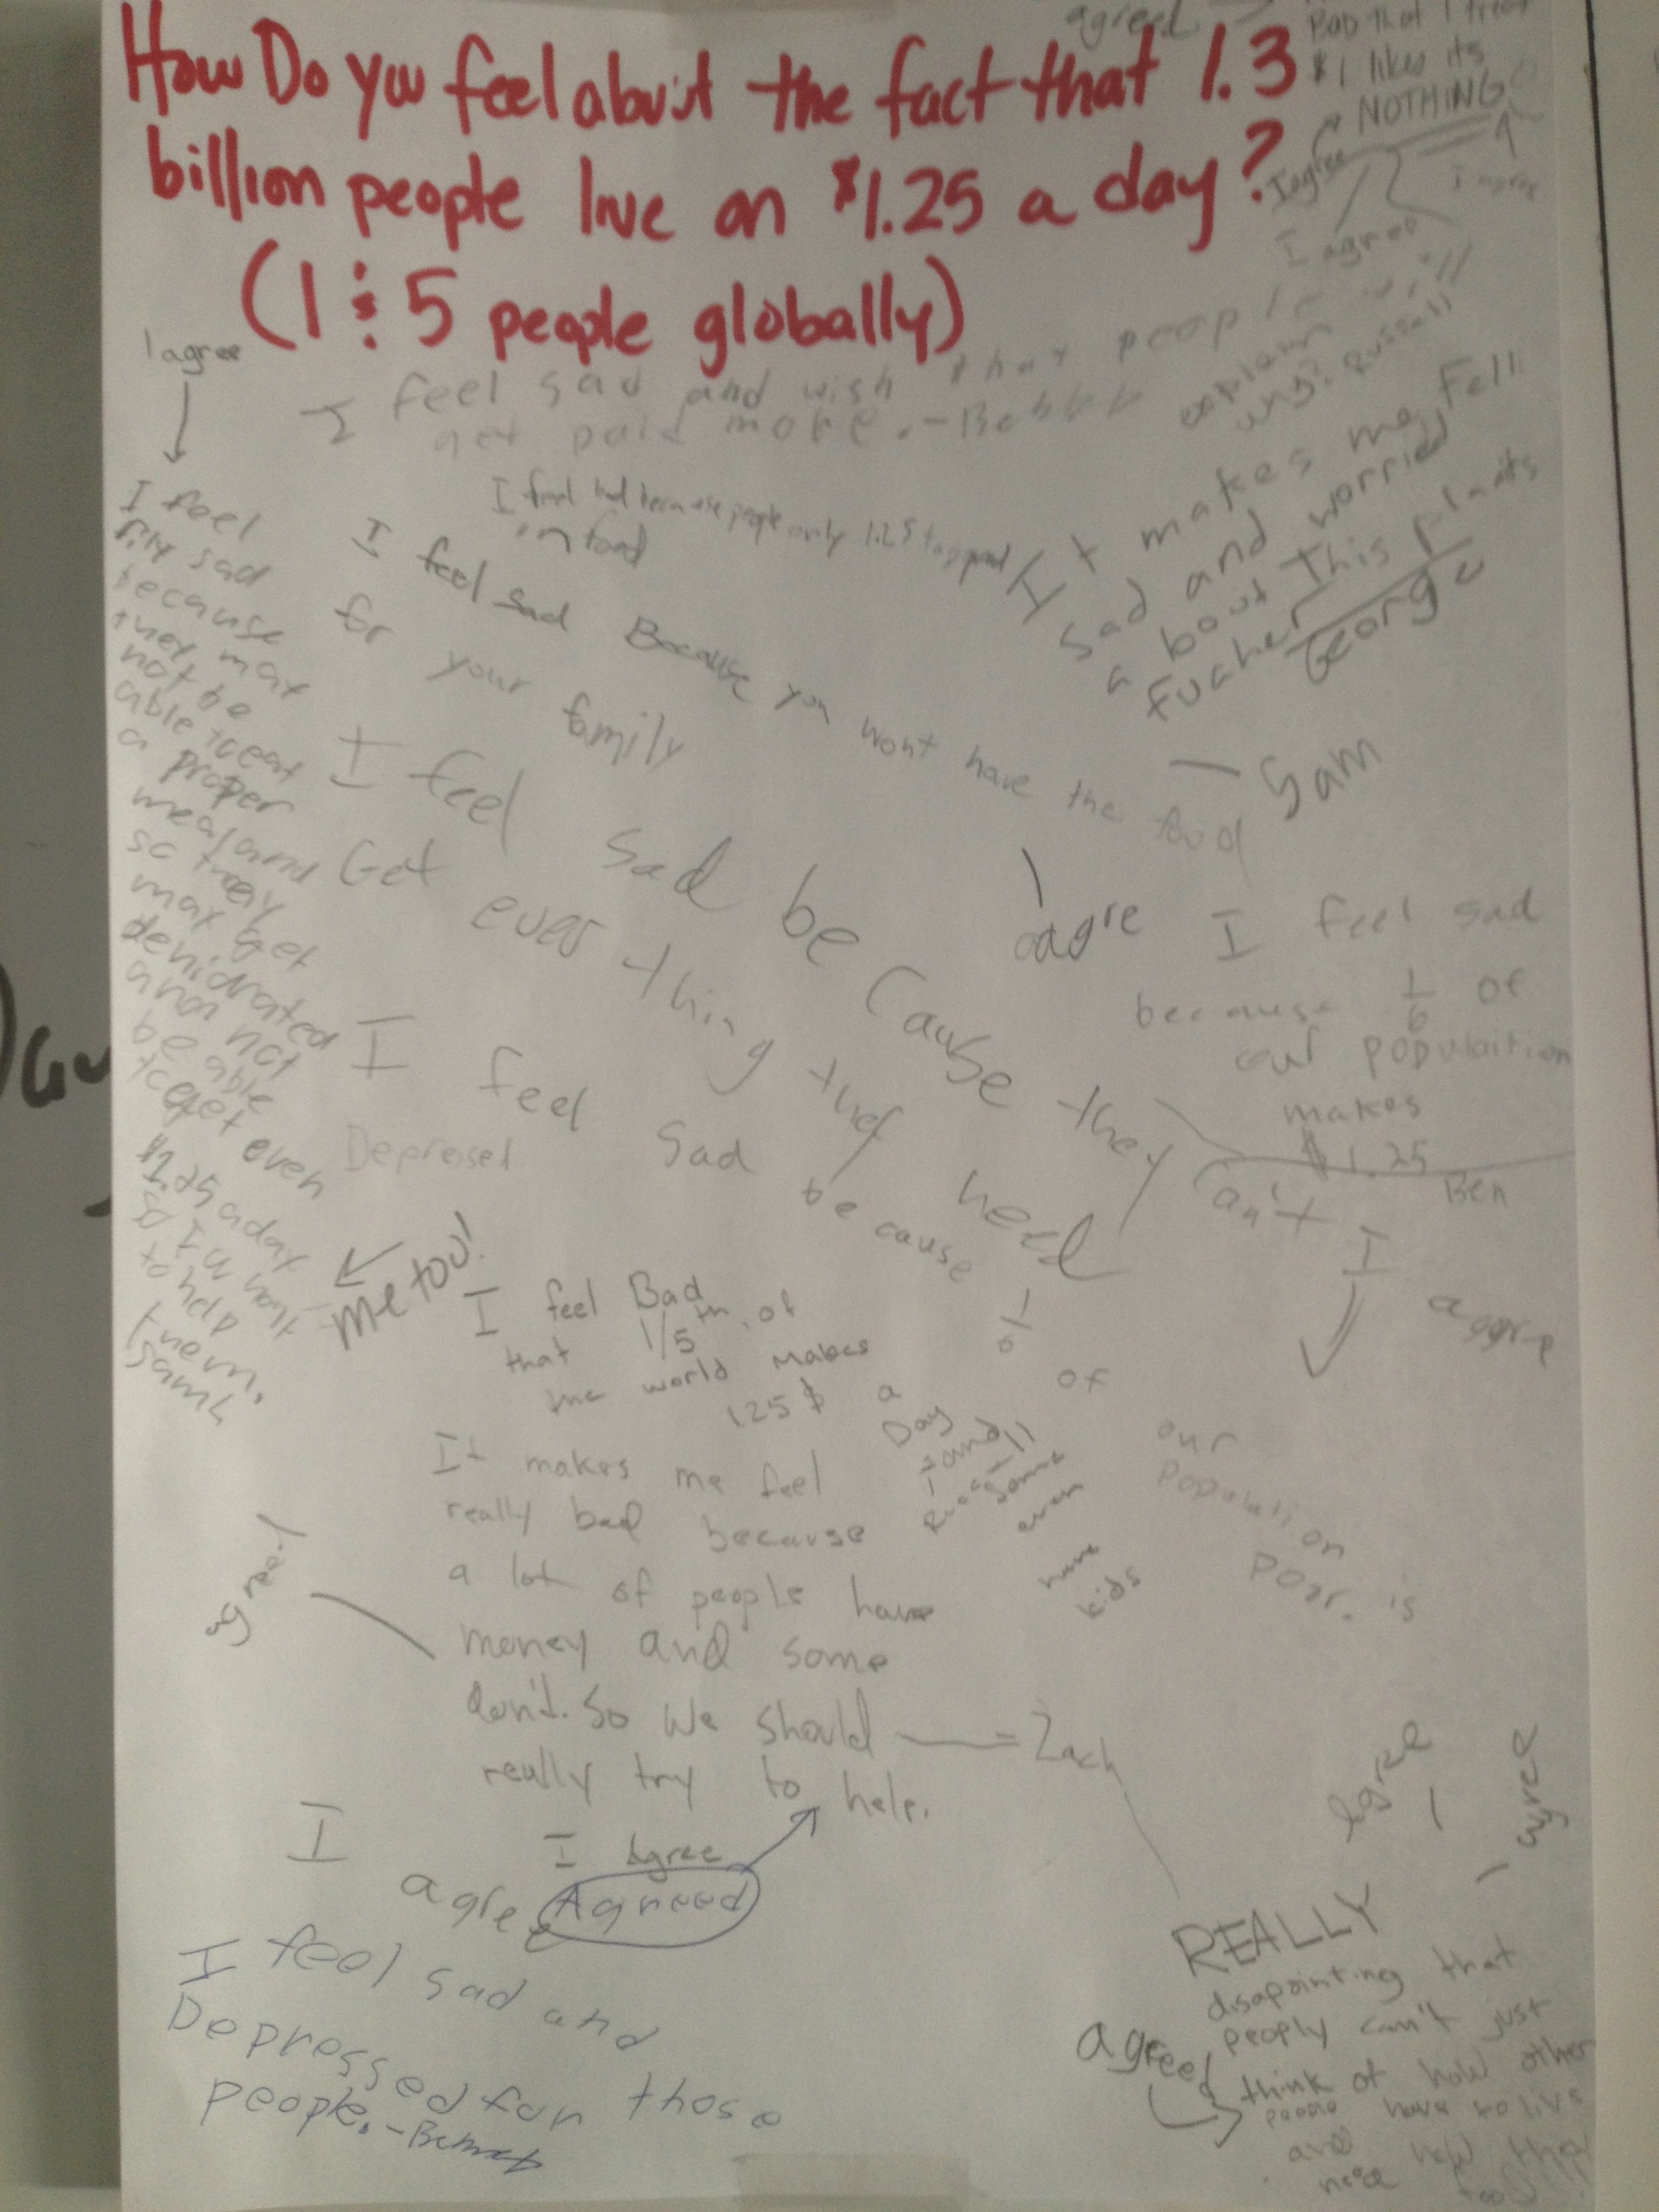 How Do you feel about the fact that 1.3
billion people live on $1.25 a day?
(1 : 5 people globally)
agreed
Bad that I treat
$1 likes its
NOTHING
I agree
I agree
I agree
I agree
I feel sad and wish that people will
get paid more.
explain
why? Russell
I feel bad because people only 1.25 to spend
on food
It makes me fell
sad and worried
about This plants
fucher
George
Sam
I feel
sad
because
they may
not be
able to eat
a proper
meal and
so they
may get
dehidrated
and not
be able
to get even
$1.25 a day
so I want
to help
them.
me too!
I feel sad Because you wont have the food
for your family
I feel sad be Cause they Can't
Get ever thing they need
agre
I feel sad
because 1/6 of
our populaition
makes
$1.25
Ben
I aggre
I feel sad because 1/6 of our population is
poor.
Depressed
I feel Bad
that 1/5th of
the world makes
1.25$ a
Day
and
some
even
have
kids
Russell
It makes me feel
really bad because
a lot of people have
money and some
don't. So We should
really try to help.
Zach
agree
I agree
I agree
Agreed
I feel sad and
Depressed for those
people.
agree
agree
REALLY
disapointing that
peoply can't just
think of how other
people have to live
and how they
need food!!!
agreed
Day